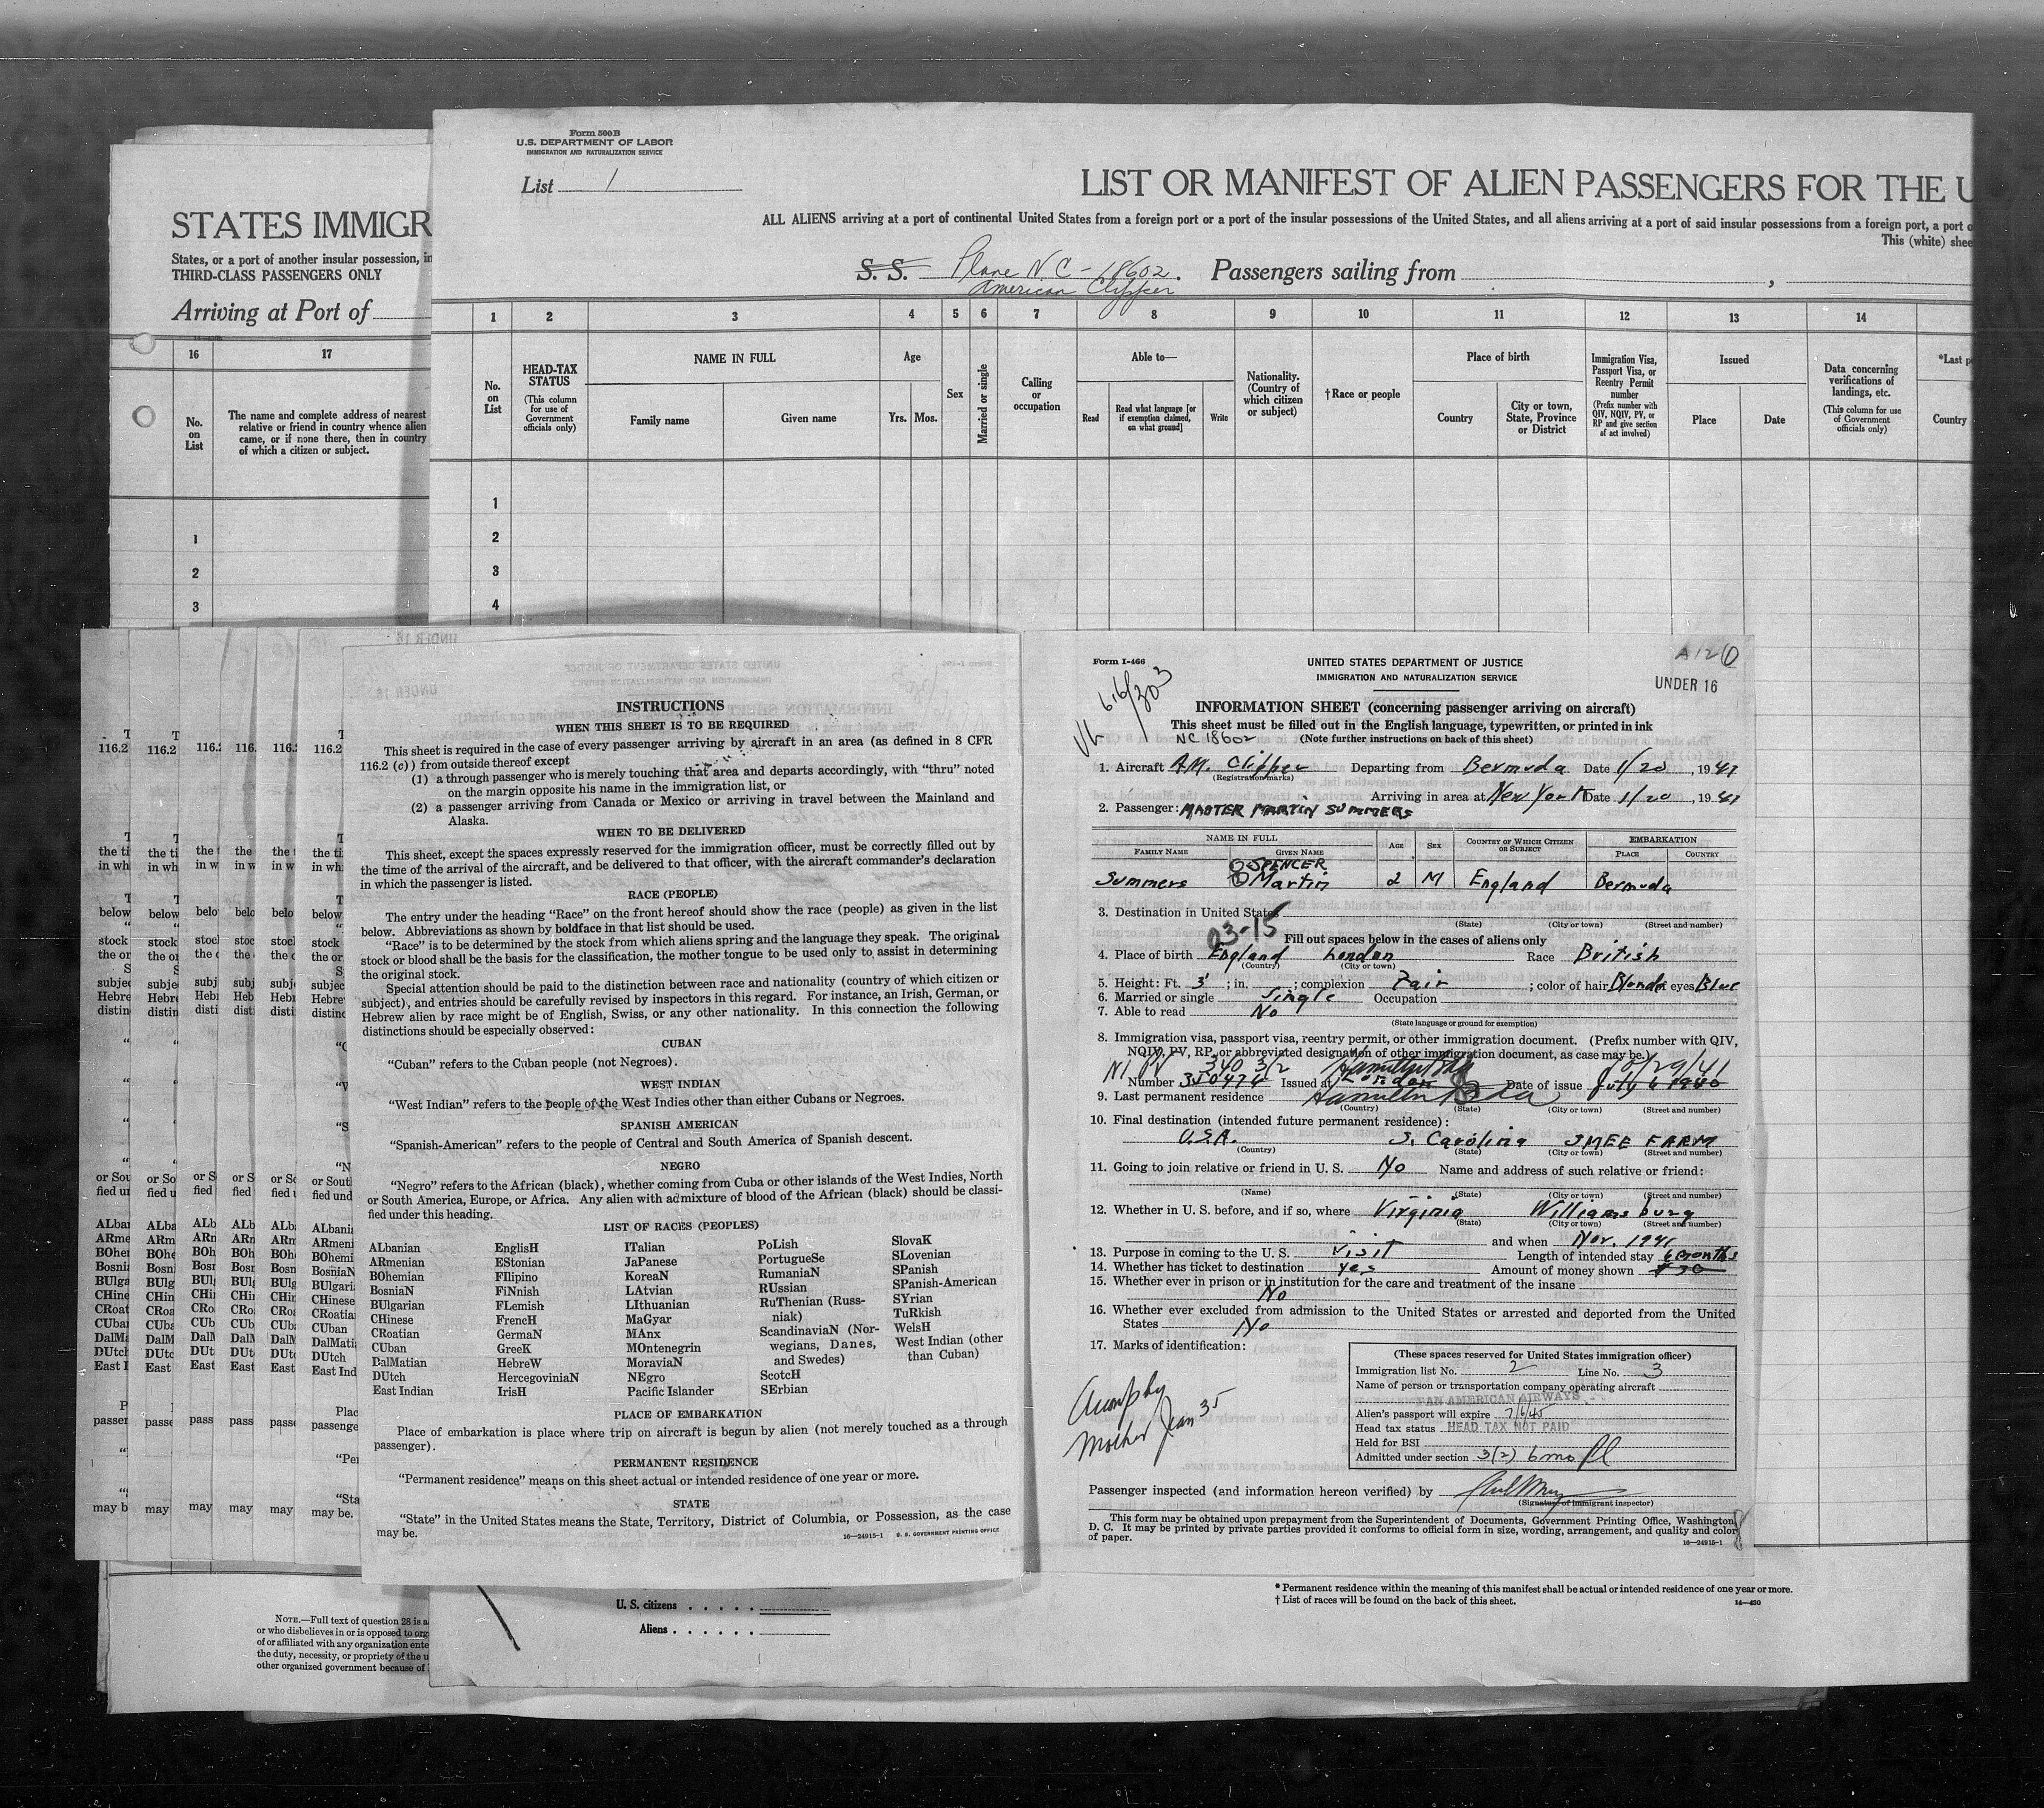 Form 500B
U.S. DEPARTMENT OF LABOR
IMMIGRATION AND NATURALIZATION SERVICE
List 1
LIST OR MANIFEST OF ALIEN PASSENGERS FOR THE U
ALL ALIENS arriving at a port of continental United States from a foreign port or a port of the insular possessions of the United States, and all aliens arriving at a port of said insular possessions from a foreign port, a port o
This (white) shee
S. S. Plane N.C-18602. Passengers sailing from ,
American Clipper
STATES IMMIGR
States, or a port of another insular possession, in
THIRD-CLASS PASSENGERS ONLY
Arriving at Port of
16 17
No. on List
The name and complete address of nearest
relative or friend in country whence alien
came, or if none there, then in country
of which a citizen or subject.
1
2
3
1 2 3 4 5 6 7 8 9 10 11 12 13 14
No. on List
HEAD-TAX STATUS
(This column for use of Government officials only)
NAME IN FULL
Family name Given name
Age
Yrs. Mos.
Sex
Married or single
Calling or occupation
Able to—
Read
Read what language [or if exemption claimed, on what ground]
Write
Nationality. (Country of which citizen or subject)
†Race or people
Place of birth
Country
City or town, State, Province or District
Immigration Visa, Passport Visa, or Reentry Permit number
(Prefix number with QIV, NQIV, PV, or RP and give section of act involved)
Issued
Place Date
Data concerning verifications of landings, etc.
(This column for use of Government officials only)
*Last p
Country
1
2
3
4
INSTRUCTIONS
WHEN THIS SHEET IS TO BE REQUIRED
This sheet is required in the case of every passenger arriving by aircraft in an area (as defined in 8 CFR
116.2 (c)) from outside thereof except
(1) a through passenger who is merely touching that area and departs accordingly, with “thru” noted
on the margin opposite his name in the immigration list, or
(2) a passenger arriving from Canada or Mexico or arriving in travel between the Mainland and
Alaska.
WHEN TO BE DELIVERED
This sheet, except the spaces expressly reserved for the immigration officer, must be correctly filled out by
the time of the arrival of the aircraft, and be delivered to that officer, with the aircraft commander’s declaration
in which the passenger is listed.
RACE (PEOPLE)
The entry under the heading “Race” on the front hereof should show the race (people) as given in the list
below. Abbreviations as shown by boldface in that list should be used.
“Race” is to be determined by the stock from which aliens spring and the language they speak. The original
stock or blood shall be the basis for the classification, the mother tongue to be used only to assist in determining
the original stock.
Special attention should be paid to the distinction between race and nationality (country of which citizen or
subject), and entries should be carefully revised by inspectors in this regard. For instance, an Irish, German, or
Hebrew alien by race might be of English, Swiss, or any other nationality. In this connection the following
distinctions should be especially observed:
CUBAN
“Cuban” refers to the Cuban people (not Negroes).
WEST INDIAN
“West Indian” refers to the people of the West Indies other than either Cubans or Negroes.
SPANISH AMERICAN
“Spanish-American” refers to the people of Central and South America of Spanish descent.
NEGRO
“Negro” refers to the African (black), whether coming from Cuba or other islands of the West Indies, North
or South America, Europe, or Africa. Any alien with admixture of blood of the African (black) should be classi-
fied under this heading.
LIST OF RACES (PEOPLES)
ALbanian
ARmenian
BOhemian
BosniaN
BUlgarian
CHinese
CRoatian
CUban
DalMatian
DUtch
East Indian
EnglisH
EStonian
FIlipino
FiNnish
FLemish
FrencH
GermaN
GreeK
HebreW
HercegoviniaN
IrisH
ITalian
JaPanese
KoreaN
LAtvian
LIthuanian
MaGyar
MAnx
MOntenegrin
MoraviaN
NEgro
Pacific Islander
PoLish
PortugueSe
RumaniaN
RUssian
RuThenian (Russ-
niak)
ScandinaviaN (Nor-
wegians, Danes,
and Swedes)
ScotcH
SErbian
SlovaK
SLovenian
SPanish
SPanish-American
SYrian
TuRkish
WelsH
West Indian (other
than Cuban)
PLACE OF EMBARKATION
Place of embarkation is place where trip on aircraft is begun by alien (not merely touched as a through
passenger).
PERMANENT RESIDENCE
“Permanent residence” means on this sheet actual or intended residence of one year or more.
STATE
“State” in the United States means the State, Territory, District of Columbia, or Possession, as the case
may be.
16—24915-1 U. S. GOVERNMENT PRINTING OFFICE
Form I-466
UNITED STATES DEPARTMENT OF JUSTICE
IMMIGRATION AND NATURALIZATION SERVICE
A12
UNDER 16
616/303
INFORMATION SHEET (concerning passenger arriving on aircraft)
This sheet must be filled out in the English language, typewritten, or printed in ink
NC 18602 (Note further instructions on back of this sheet)
1. Aircraft AM. Clipper Departing from Bermuda Date 1/20, 1941
(Registration marks)
Arriving in area at New York Date 1/20, 1941
2. Passenger: MASTER MARTIN SUMMERS
NAME IN FULL AGE SEX COUNTRY OF WHICH CITIZEN OR SUBJECT EMBARKATION
FAMILY NAME GIVEN NAME PLACE COUNTRY
SPENCER
Summers Martin 2 M England Bermuda
3. Destination in United States
(State) (City or town) (Street and number)
03-15 Fill out spaces below in the cases of aliens only
4. Place of birth England London Race British
(Country) (City or town)
5. Height: Ft. 3' ; in. ; complexion Fair ; color of hair Blonde eyes Blue
6. Married or single Single Occupation
7. Able to read No
(State language or ground for exemption)
8. Immigration visa, passport visa, reentry permit, or other immigration document. (Prefix number with QIV,
NQIV, PV, RP, or abbreviated designation of other immigration document, as case may be.)
NI PV 340 312 Hamilton Bda 10/29/41
Number 350474 Issued at London Date of issue July 6 1940
9. Last permanent residence Hamilton Bda
(Country) (State) (City or town) (Street and number)
10. Final destination (intended future permanent residence):
U.S.A. S. Carolina SMEE FARM
(Country) (State) (City or town) (Street and number)
11. Going to join relative or friend in U. S. No Name and address of such relative or friend:
(Name) (State) (City or town) (Street and number)
12. Whether in U. S. before, and if so, where Virginia Williamsburg
(State) (City or town) (Street and number)
and when Nov. 1941
13. Purpose in coming to the U. S. Visit Length of intended stay 6 months
14. Whether has ticket to destination Yes Amount of money shown $30
15. Whether ever in prison or in institution for the care and treatment of the insane
No
16. Whether ever excluded from admission to the United States or arrested and deported from the United
States No
17. Marks of identification:
Accomp by
Mother Jean 35
(These spaces reserved for United States immigration officer)
Immigration list No. 2 Line No. 3
Name of person or transportation company operating aircraft
PAN AMERICAN AIRWAYS
Alien’s passport will expire 7/6/45
Head tax status HEAD TAX NOT PAID
Held for BSI
Admitted under section 3(2) 6 mo
Passenger inspected (and information hereon verified) by
(Signature of immigrant inspector)
This form may be obtained upon prepayment from the Superintendent of Documents, Government Printing Office, Washington,
D. C. It may be printed by private parties provided it conforms to official form in size, wording, arrangement, and quality and color
of paper.
16—24915-1
U. S. citizens
Aliens
* Permanent residence within the meaning of this manifest shall be actual or intended residence of one year or more.
† List of races will be found on the back of this sheet.
14—420
NOTE.—Full text of question 28 is a
or who disbelieves in or is opposed to org
of or affiliated with any organization ente
the duty, necessity, or propriety of the u
other organized government because of